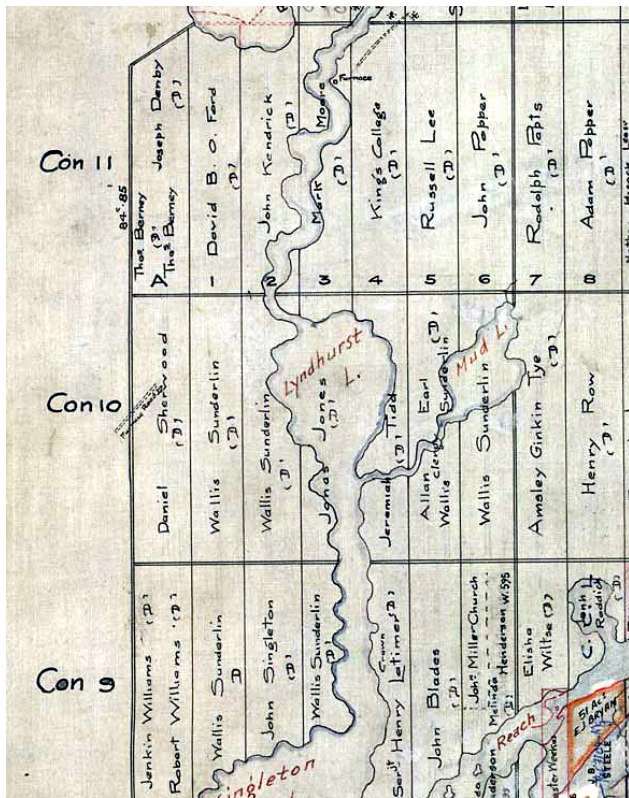 Con 11
84°.85
Thos Barney
(D)
Thos Barney
Joseph Denby
(D)
1 David B. O. Ford
(D)
2 John Kendrick
(D)
3 Mark Moore
(D)
Furnace
4 King's College
(D)
5 Russell Lee
(D)
6 John Popper
(D)
7 Rodolph Papts
(D)
8 Adam Popper
(D)
Con 10
Daniel Sherwood
(D)
Wallis Sunderlin
(D)
Wallis Sunderlin
(D)
Lyndhurst
L.
Jonas Jones
(D)
Jeremiah Tidd
(D)
Allan Earl (D)
Clergy
Wallis Sunderlin
Mud L.
Wallis Sunderlin
Amsley Ginkin Tye
(D)
Henry Row
(D)
Con 9
Jenkin Williams (D)
Robert Williams (D)
Wallis Sunderlin
D
John Singleton
(D)
Wallis Sunderlin
(D)
ingleton
Crown
Serjt Henry Latimer (D)
John Blades
(D)
John Miller Church
Melinda Henderson W.595
(D)
Reach
Elisha
Wiltse (D)
C.
L.
Reddick
51 Acs
E.J BRYAN
STEELE